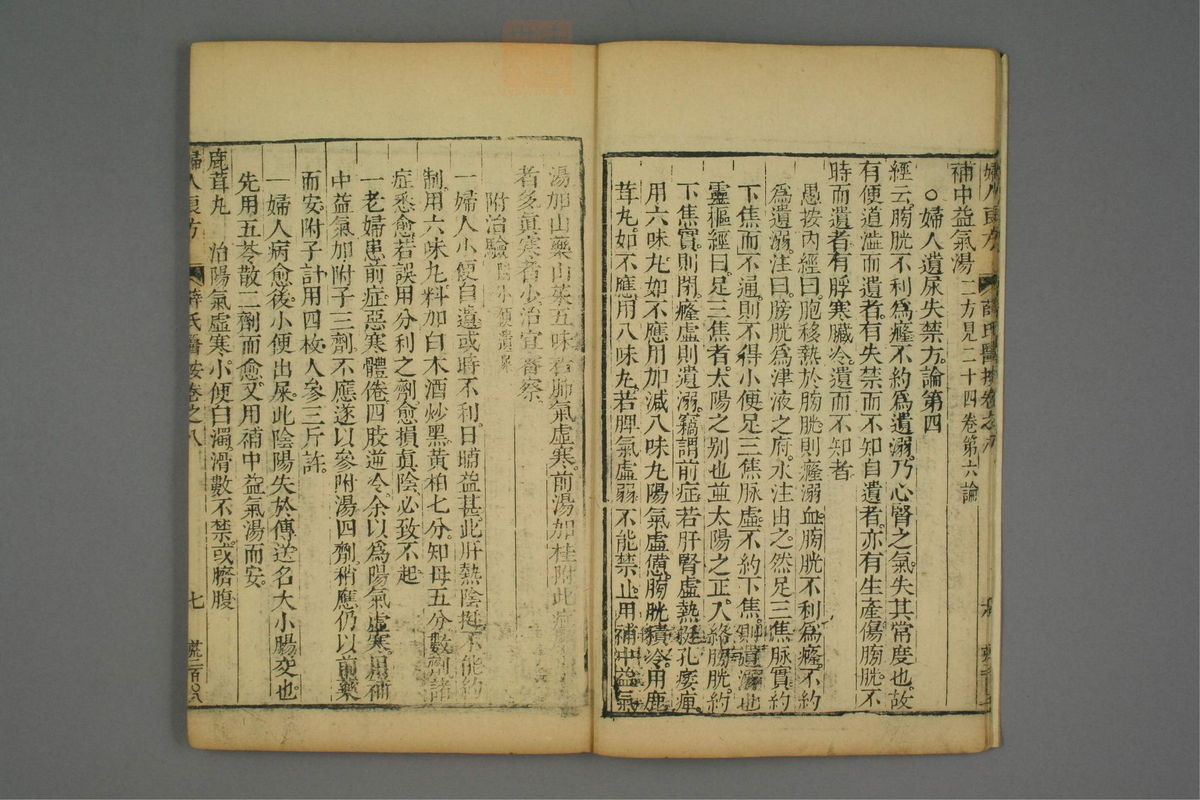 婦人良方 薛氏醫按卷之八
補中益氣湯二方見二十四卷第六論
○婦人遺尿失禁方論第四
經云。膀胱不利爲癃。不約爲遺溺。乃心腎之氣。失其常度也。故
有便道澁而遺者。有失禁而不知自遺者。亦有生產傷膀胱。不
時而遺者。有脬寒臟冷。遺而不知者
愚按內經曰。胞移熱於膀胱。則癃溺血。膀胱不利爲癃。不約
爲遺溺。注曰。膀胱爲津液之府。水注由之。然足三焦脉實。約
下焦而不通。則不得小便。足三焦脉虛。不約下焦。則遺溺也
靈樞經曰。足三焦者。太陽之别也。並太陽之正。入絡膀胱。約
下焦。實則閉癃。虛則遺溺。竊謂前症若肝腎虛熱。挺孔痿痺。
用六味丸。如不應用加減八味丸。陽氣虛憊。膀胱積冷。用鹿
茸丸。如不應。用八味丸。若脾氣虛弱。不能禁止。用補中益氣
湯加山藥山茱五味。若肺氣虛寒。前湯加桂附。此症
者多。眞寒者少。治宜審察
附治驗
一婦人小便自遺。或時不利。日晡益甚。此肝熱陰挺。不能約
制。用六味丸。料加白木酒炒黑黃柏七分。知母五分。數劑。諸
症悉愈。若誤用分利之劑。愈損眞陰。必致不起
一老婦患前症。惡寒體倦。四肢逆冷。余以爲陽氣虛寒。用補
中益氣加附子三劑。不應。遂以參附湯四劑。稍應。仍以前藥
而安。附子計用四枚。人參三斤許。
一婦人病愈後。小便出屎。此陰陽失於傳送。名大小腸交也。
先用五苓散二劑而愈。又用補中益氣湯而安
鹿茸丸 治陽氣虛寒。小便白濁。滑數不禁。或臍腹
婦人良方 薛氏醫按卷之八 七